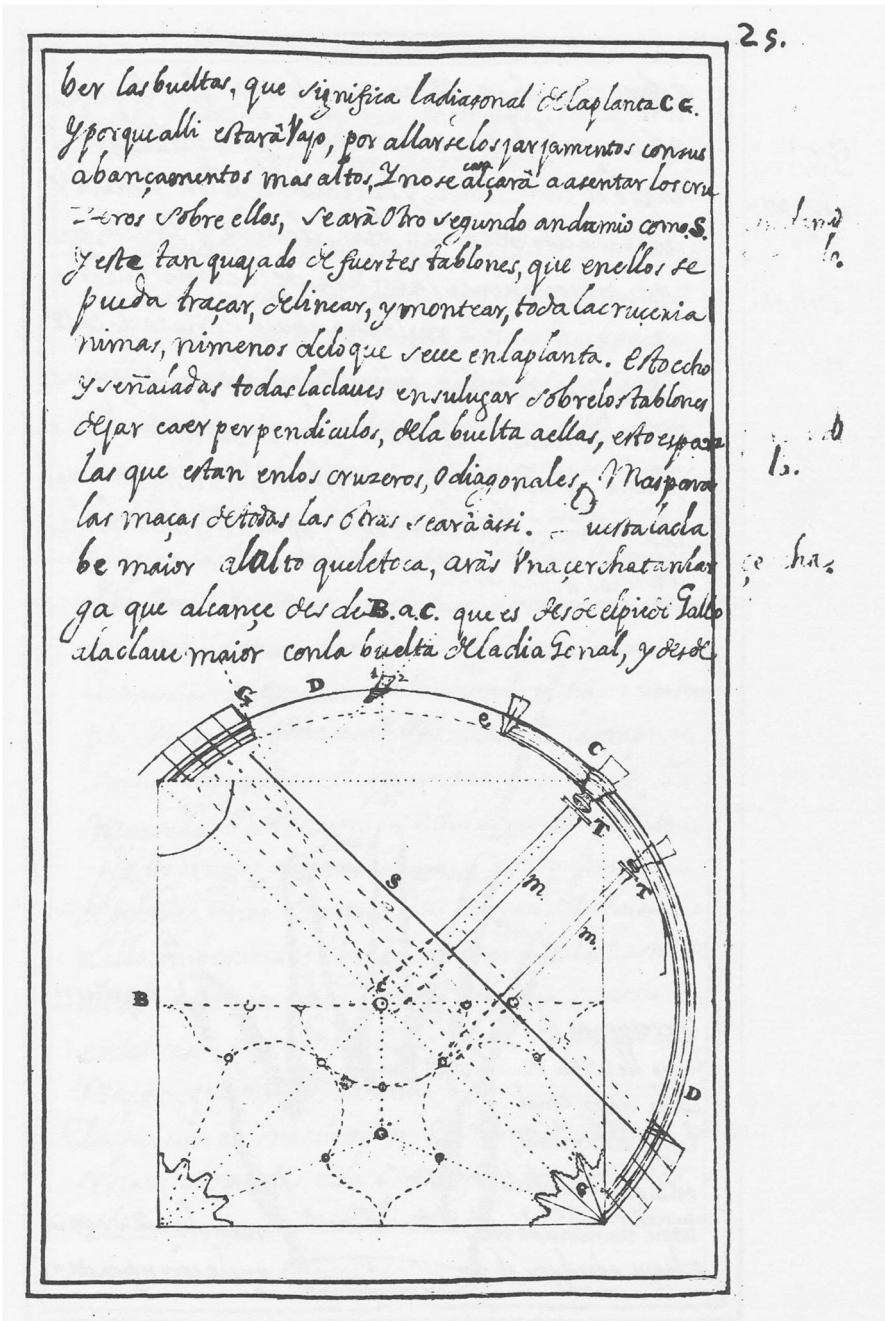 25.
ber las bueltas, que significa la diagonal de la planta C G.
Y porque alli estarã Vajo, por allarse los jarjamentos con sus
abançamentos mas altos, Y no se alçarã a asentar los cru
zeros sobre ellos, se arã Otro segundo andamio como S.
y este tan quajado de fuertes tablones, que en ellos se
pueda traçar, delinear, y montear, toda la cruceria
ni mas, ni menos de lo que se ve en la planta. Esto echo
y señaladas todas la claves en su lugar sobre los tablones
dejar caer perpendiculos, de la buelta a ellas, esto es para
las que estan en los cruzeros, O diagonales, Mas para
las maças de todas las otras se arã assi. Puesta la cla
be maior al alto que le toca, arãs Vna çercha tan lar
ga que alcançe desde B. a. C. que es desde el pie de Gallo
a la clave maior con la buelta de la diaGonal, y desde
G D 1 2
e C
T
S m T
m
B C
D